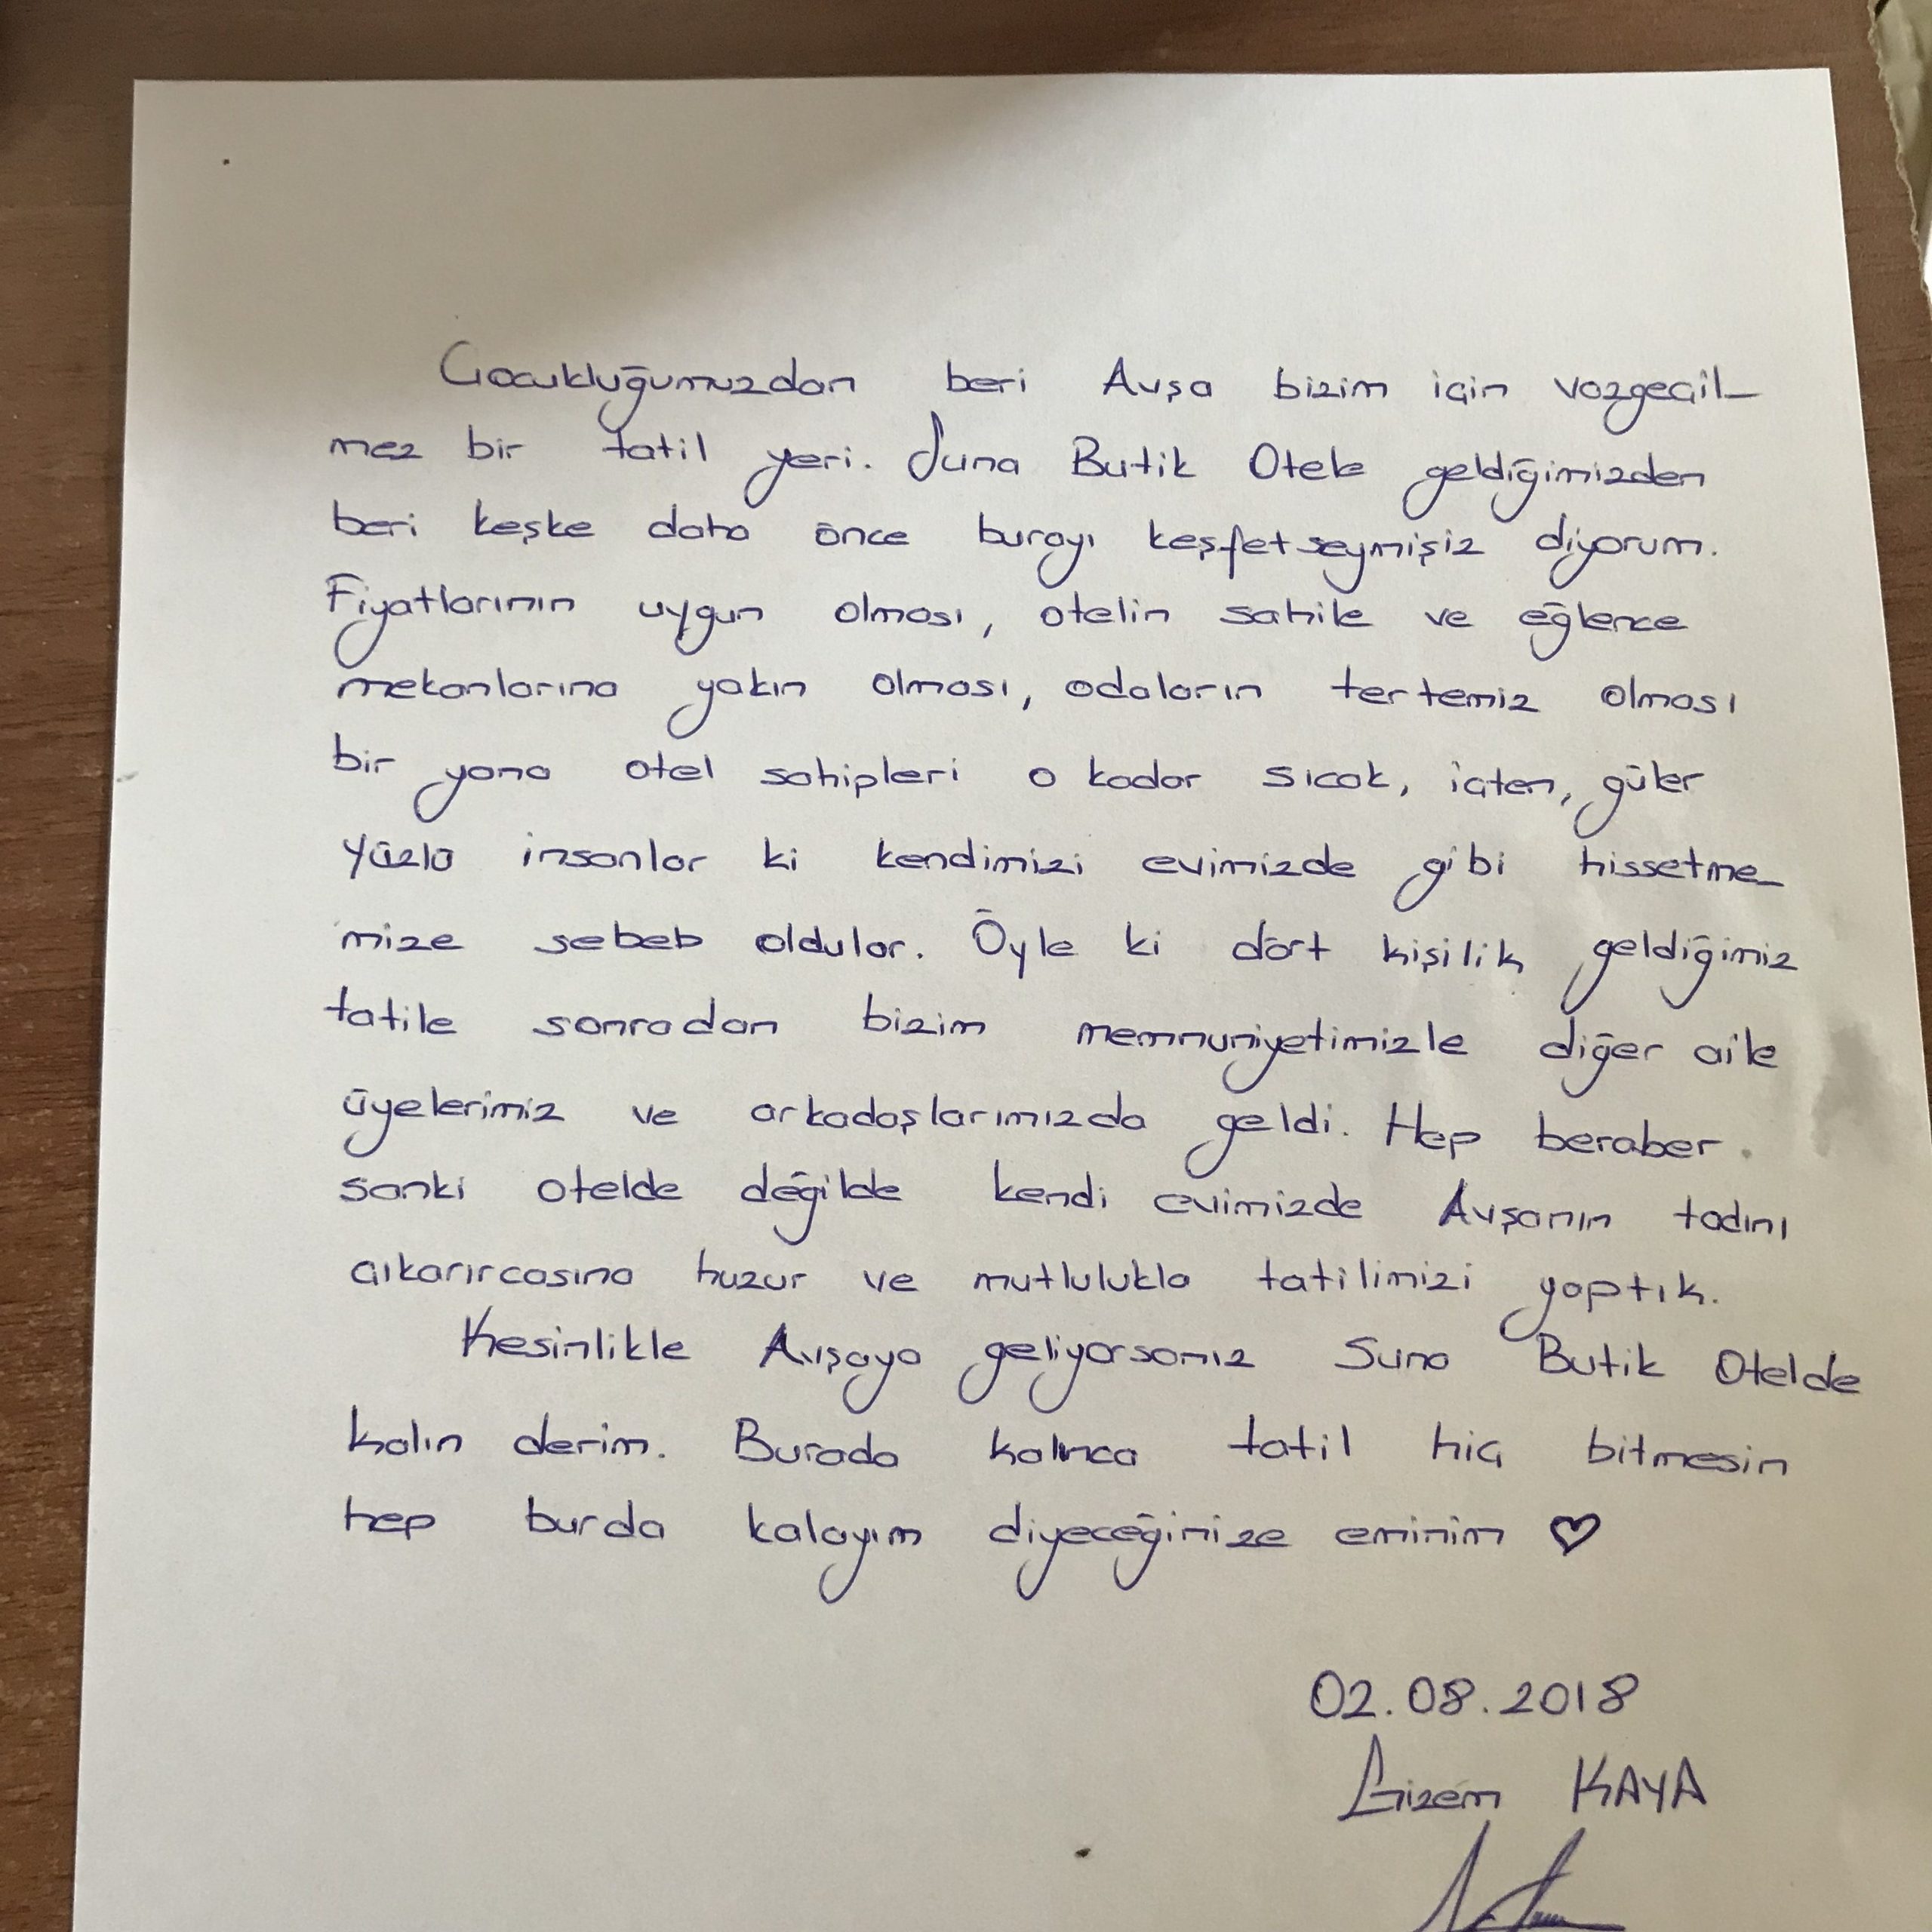 Çocukluğumuzdan beri Avşa bizim için vazgeçil-
mez bir tatil yeri. Suna Butik Otele geldiğimizden
beri keşke daha önce burayı keşfetseymişiz diyorum.
Fiyatlarının uygun olması, otelin sahile ve eğlence
mekanlarına yakın olması, odaların tertemiz olması
bir yana otel sahipleri o kadar sıcak, içten, güler
yüzlü insanlar ki kendimizi evimizde gibi hissetme-
mize sebeb oldular. Öyle ki dört kişilik geldiğimiz
tatile sonradan bizim memnuniyetimizle diğer aile
üyelerimiz ve arkadaşlarımızda geldi. Hep beraber
sanki otelde değilde kendi evimizde Avşanın tadını
çıkarırcasına huzur ve mutlulukla tatilimizi yaptık.
Kesinlikle Avşaya geliyorsanız Suna Butik Otelde
kalın derim. Burada kalınca tatil hiç bitmesin
hep burda kalayım diyeceğinize eminim ♡
02.08.2018
Gizem KAYA